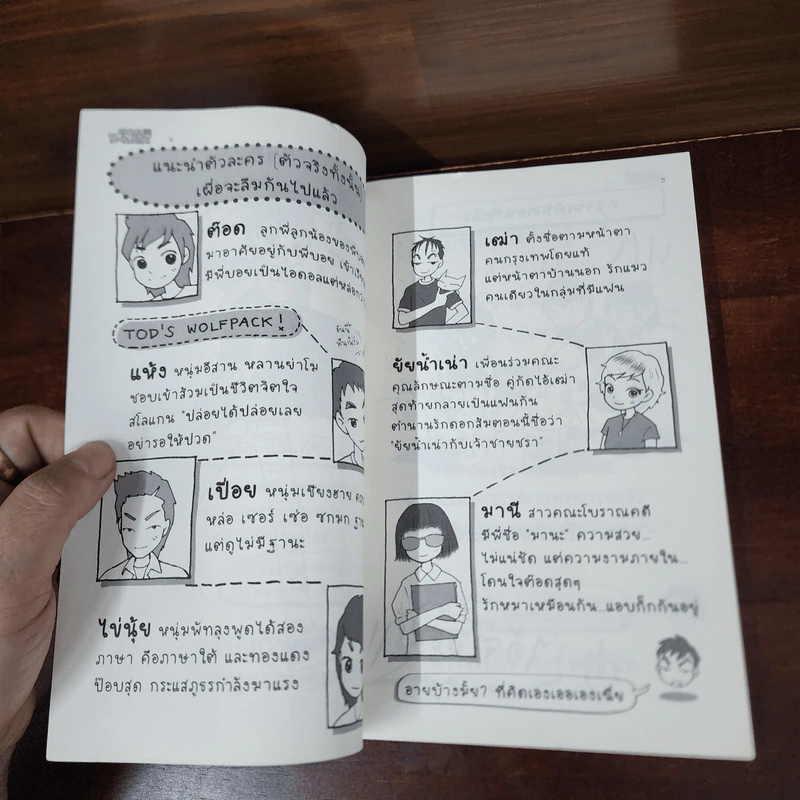 แนะนำตัวละคร (ตัวจริงทั้งนั้น)
เผื่อจะลืมกันไปแล้ว
ต๊อด ลูกพี่ลูกน้องของพี่
มาอาศัยอยู่กับพี่บอย
มีพี่บอยเป็นไอดอลแต่หล่อกว่า
TOD'S WOLFPACK!
แห้ง หนุ่มอีสาน หลานย่าโม
ชอบเข้าส้วมเป็นชีวิตจิตใจ
สโลแกน "ปล่อยได้ปล่อยเลย
อย่ารอให้ปวด"
เปือย หนุ่มเชียงฮาย
หล่อ เซอร์ เซ่อ ซกมก
แต่ดูไม่มีฐานะ
ไข่นุ้ย หนุ่มพัทลุงพูดได้สอง
ภาษา คือภาษาใต้ และทองแดง
ป๊อบสุด กระแสภูธรกำลังมาแรง
5
เฒ่า ตั้งชื่อตามหน้าตา
คนกรุงเทพโดยแท้
แต่หน้าตาบ้านนอก รักแมว
คนเดียวในกลุ่มที่มีแฟน
ยัยน้ำเน่า เพื่อนร่วมคณะ
คุณลักษณะตามชื่อ คู่กัดไอ้เฒ่า
สุดท้ายกลายเป็นแฟนกัน
ตำนานรักดอกส้มตอนนี้ชื่อว่า
"ยัยน้ำเน่ากับเจ้าชายชรา"
มานี สาวคณะโบราณคดี
มีพี่ชื่อ "มานะ" ความสวย...
ไม่แน่ชัด แต่ความงามภายใน...
โดนใจต๊อดสุดๆ
รักหมาเหมือนกัน...แอบกิ๊กกันอยู่
อายบ้างมั้ย? ที่คิดเองเออเองเนี่ย